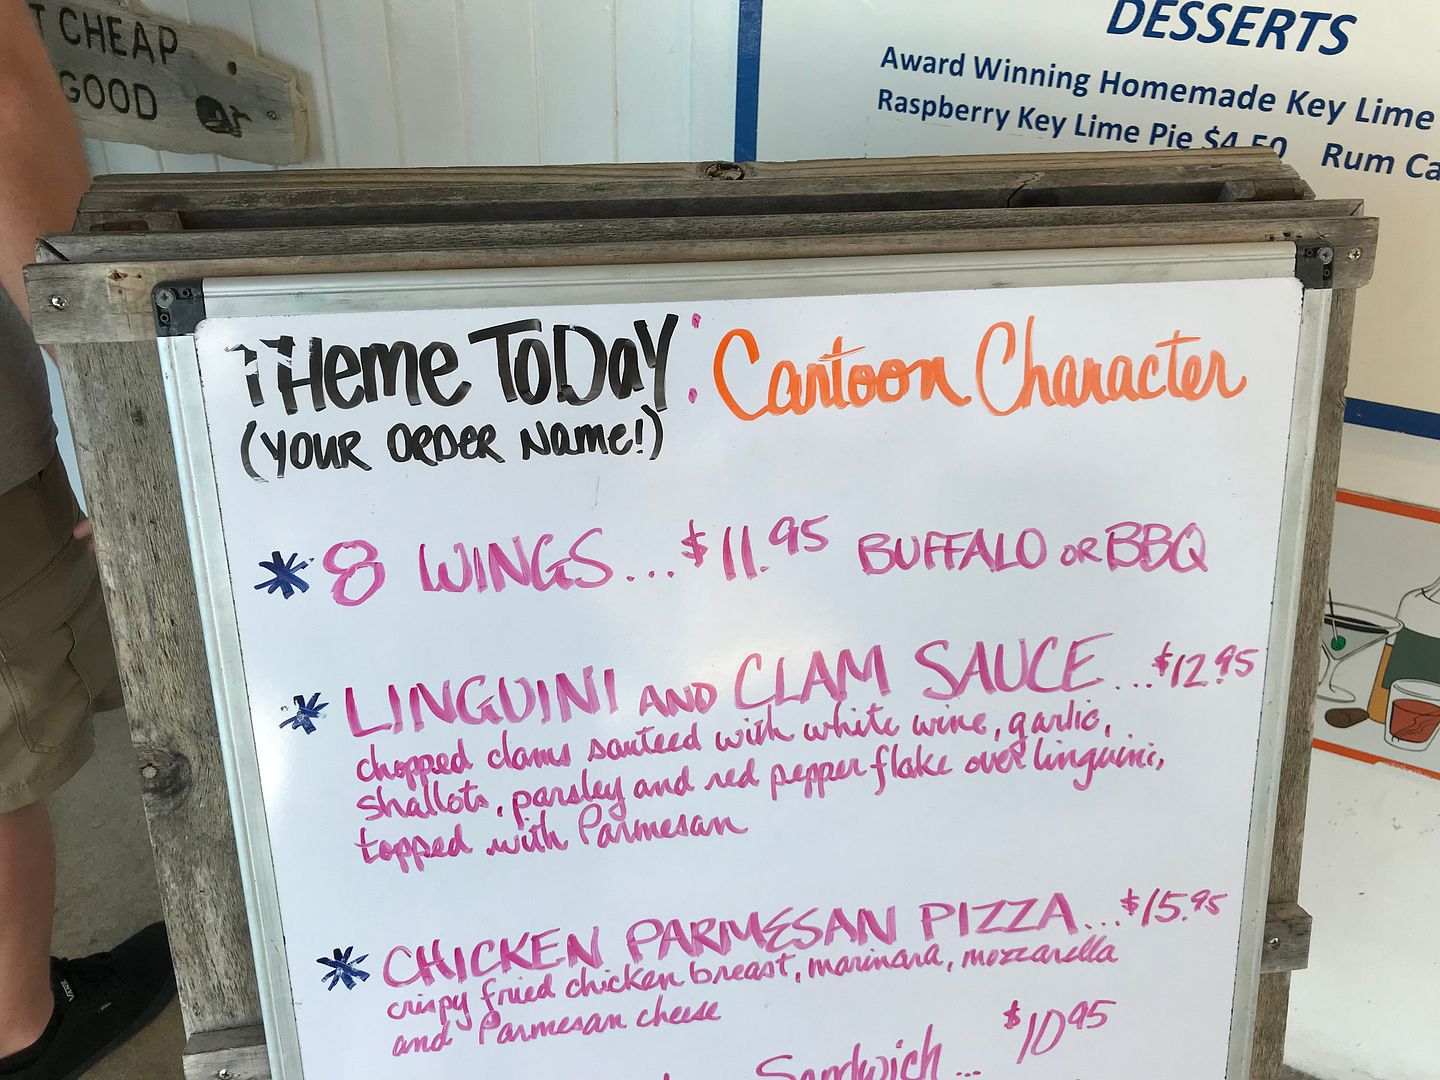 T CHEAP
GOOD
DESSERTS
Award Winning Homemade Key Lime
Raspberry Key Lime Pie $4.50 Rum Ca
THeme ToDaY: Cartoon Character
(YOUR ORDER Name!)
* 8 WINGS...$11.95 BUFFALO OR BBQ
* LINGUINI AND CLAM SAUCE...$12.95
chopped clams sauteed with white wine, garlic,
shallots, parsley and red pepper flake over linguini,
topped with Parmesan
* CHICKEN PARMESAN PIZZA...$15.95
crispy fried chicken breast, marinara, mozzarella
and Parmesan cheese
Sandwich... $10.95